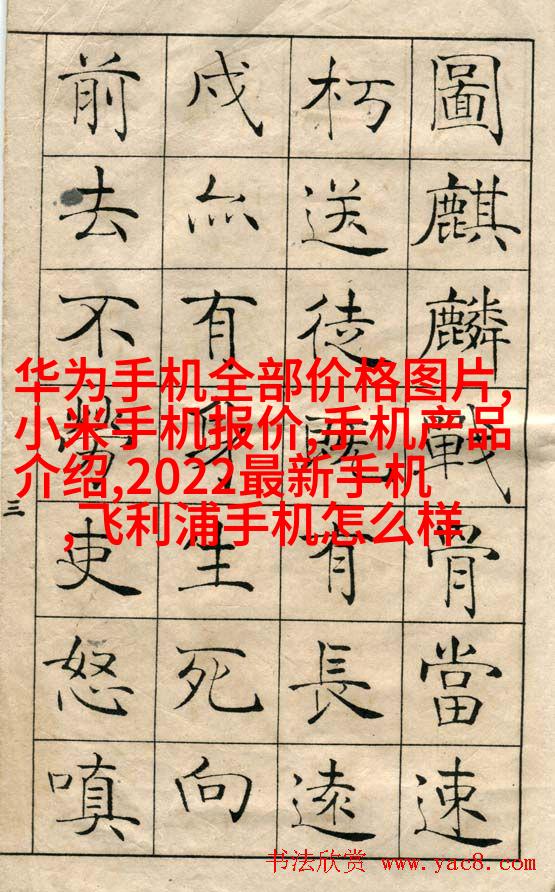 圖麒麟戰骨當速
朽送徒既有長遠
戍亦有身生死向
前去不勞吏怒嗔
三
华为手机全部价格图片,
小米手机报价,手机产品
介绍,2022最新手机
,飞利浦手机怎么样
书法欣赏 www.yac8.com